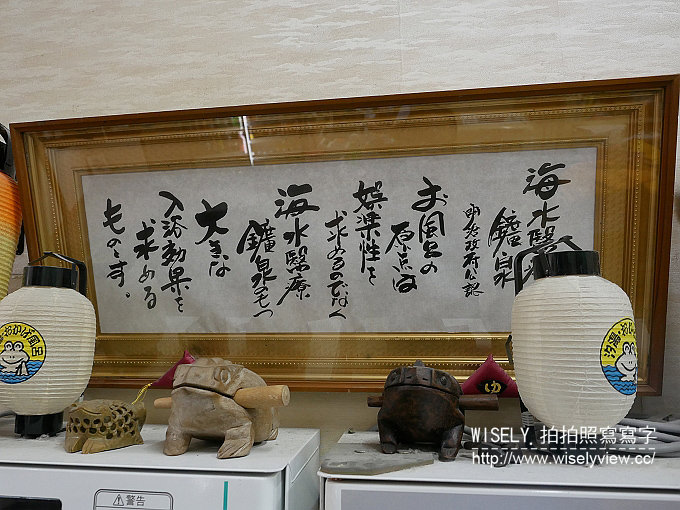 海水醫療
鑛泉
明治政府公認
お風呂の
原点は
娯楽性を
求めるのでなく
海水醫療
鑛泉もつ
大きな
入浴効果を
求める
ものです。
汐湯・おかげ風呂
汐湯・お
ゆ
警告
WISELY. 拍拍照寫寫字
http://www.wiselyview.cc/